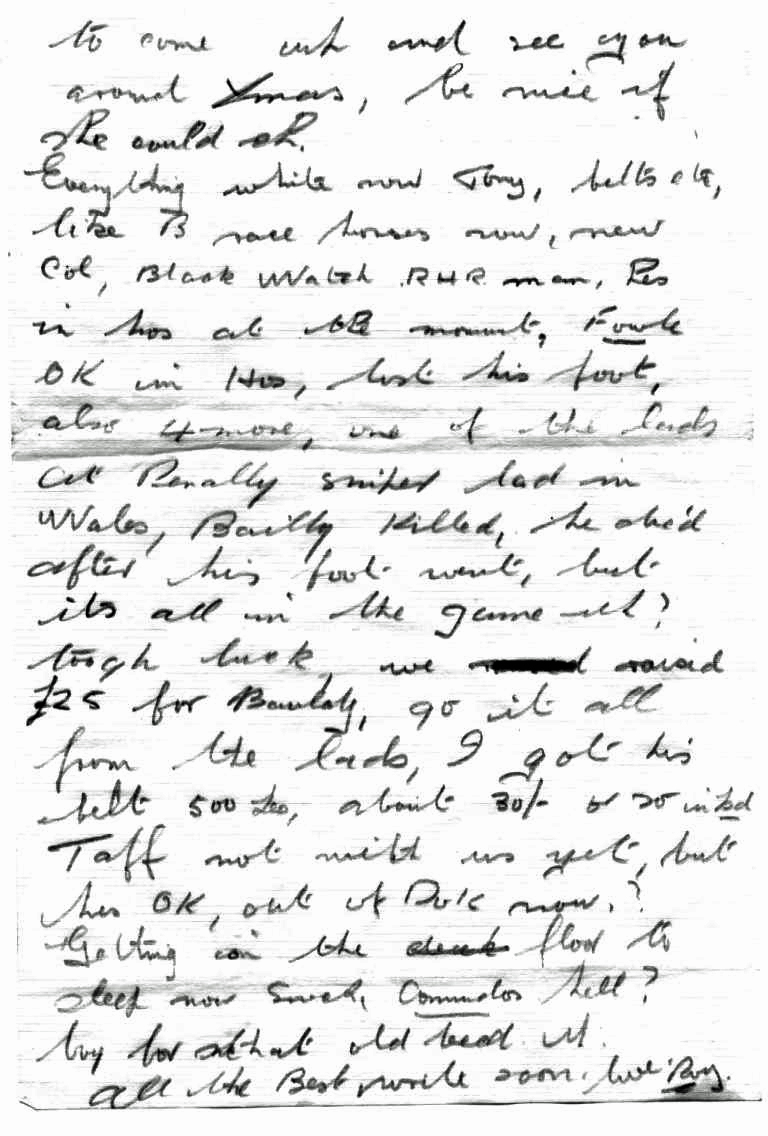 to come up and see you
around Xmas, be nice if
she could eh.
Everything white now Tony, belts etc,
like B race horses now, new
Col, Black Watch RHR man, Les
in hos at the mount, Fowle
OK in Hos, lost his foot,
also 4 more, one of the lads
at Penally sniper lad in
Wales, Bailly Killed, he died
after his foot went, but
its all in the game eh?
tough luck, we raisid
£25 for go it all
from the lads, I got his
belt 500 about 30/- or so
Taff not with us yet, but
hes OK, out of now.?
Getting on the floor to
sleep now Commdos hell?
buy for that old
All the Best, write soon. love Roy.